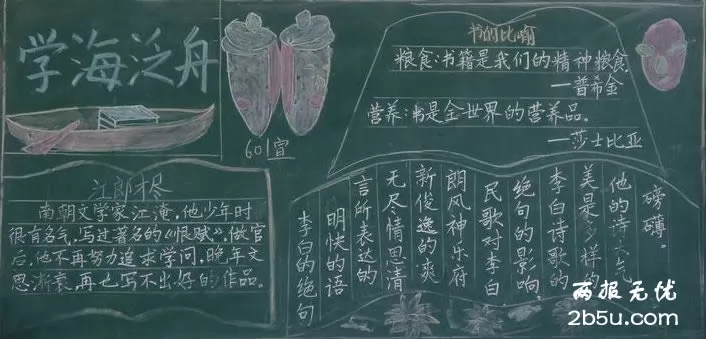 学海泛舟
601宣
书的比喻
粮食:书籍是我们的精神粮食
—普希金
营养:书是全世界的营养品。
—莎士比亚
江郎才尽
南朝文学家江淹,他少年时
很有名气,写过著名的《恨赋》,做官
后,他不再努力追求学问,晚年文
思渐衰,再也写不出好的作品。
李白的绝句
明快的语
言所表达的
无尽情思清
新俊逸的爽
朗风神乐府
民歌对李白
绝句的影响。
李白诗歌的
美是多样的
他的诗大气
磅礴。
两报无忧
2b5u.com